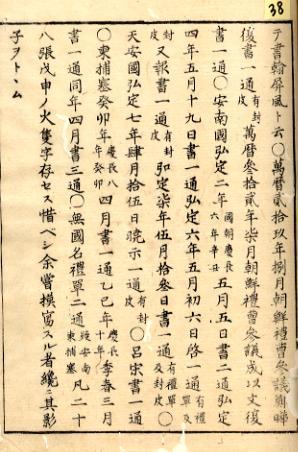 テ書翰屏風ト云〇萬暦貳拾玖年捌月朝鮮禮曹参議
復書一通有封皮萬暦叁拾貳年柒月朝鮮禮曹参議成以文復
書一通〇安南國弘定二年國朝慶長六年辛丑五月五日書二通弘定
四年五月十九日書一通弘定六年五月初六日啓一通有禮單及
封皮又報書一通有封皮弘定柒年伍月拾叁日書一通有禮單及封皮
天安國弘定七年肆月拾伍日曉示一通有封皮〇呂宋書一通
〇柬捕塞癸卯年慶長八年癸卯四月書一通乙巳年慶長十年季春三月
書一通同年四月書三通〇無國名禮單二通疑安南柬捕塞凡二十
八張戊申ノ火隻字存セス惜ベシ余嘗摸寫スル者纔ニ其影
子ヲトヽム
38